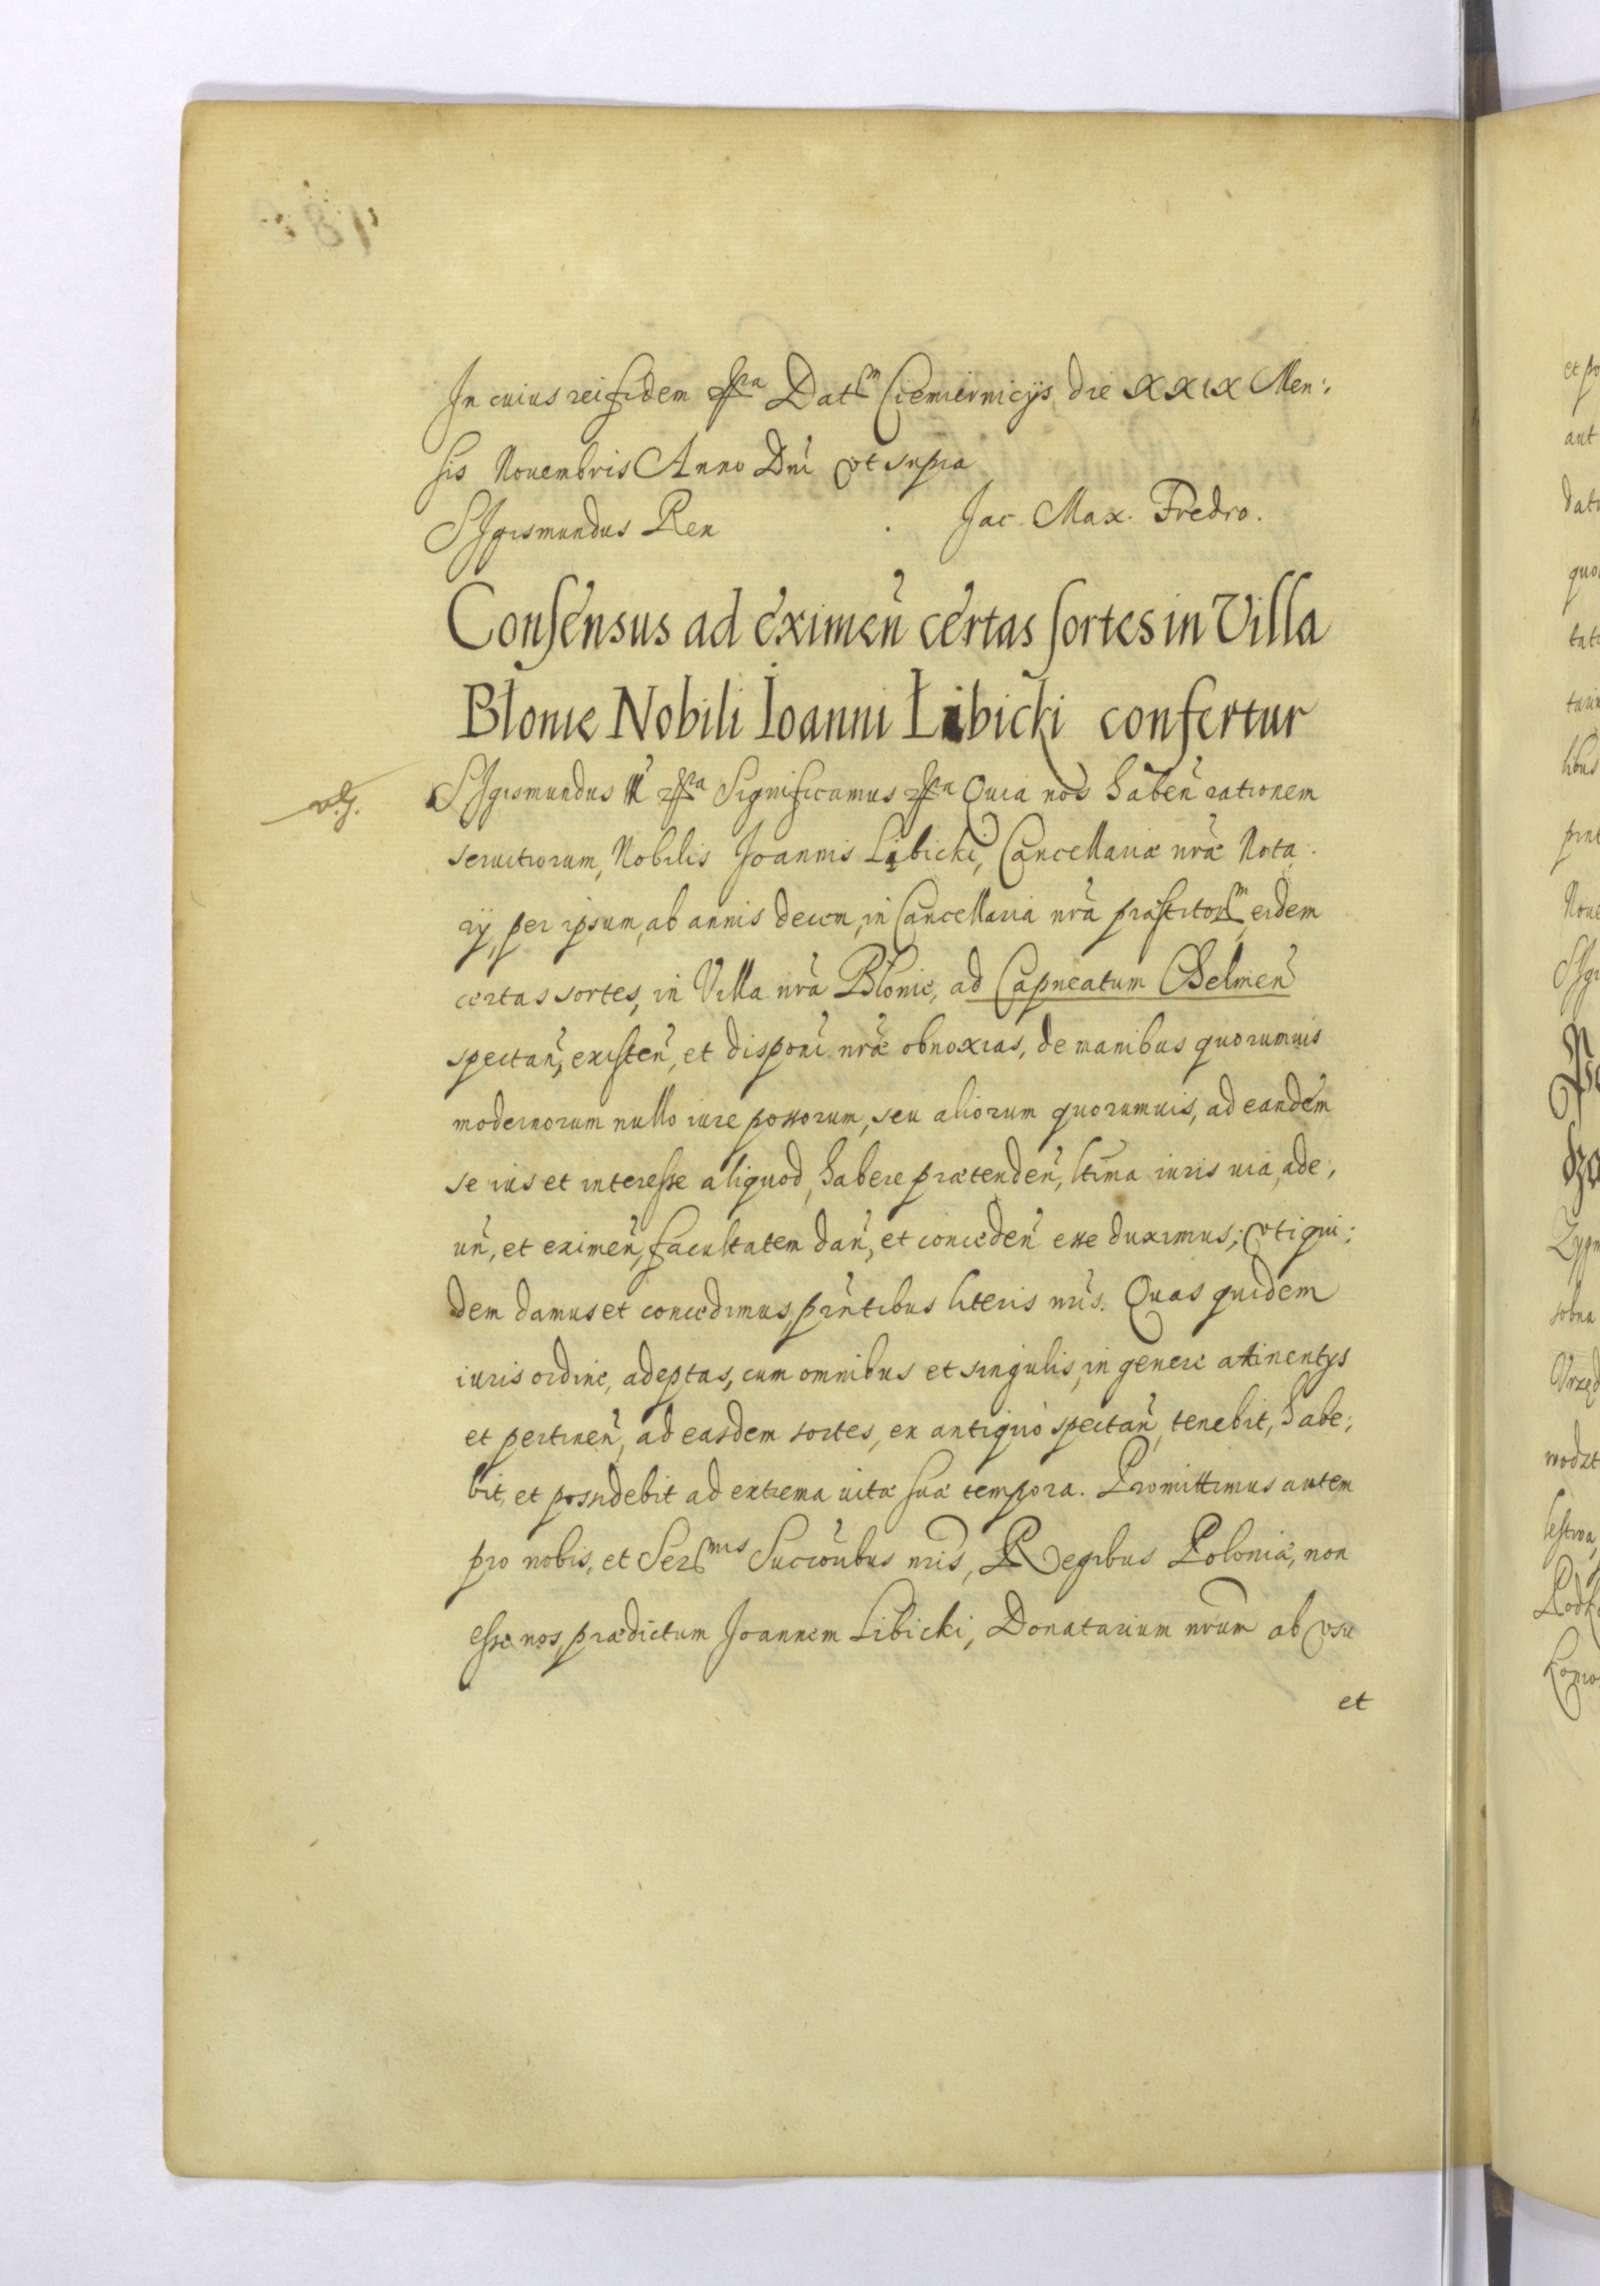 In cuius rei fidem &ra Datm Ciemiernicijs, die XXIX Men:
sis Nouembris Anno Dni vt supra
Sigismundus Rex Jac. Max. Fredro.
Consensus ad eximen̄ certas sortes in Villa
Błonie Nobili Ioanni Libicki confertur
Sigismundus III &ra Significamus &ra Quia nos haben̄ rationem
seruitiorum, Nobilis Joannis Libicki, Cancellariæ nr̄æ Nota:
rij, per ipsum, ab annis decem, in Cancellaria nr̄a præstitorm, eidem
certas sortes, in Villa nr̄a Błonie, ad Capneatum Chelmen̄
spectan̄, existen̄, et dispoñi nr̄æ obnoxias, de manibus quorumuis
modernorum nullo iure possorum, seu aliorum quorumuis, ad eandem
se ius et interesse aliquod, habere prætenden̄, ltima iuris uia, ade:
un̄, et eximen̄, facultatem dan̄, et conceden̄ esse duximus; vti qui:
dem damus et concedimus, prn̄tibus literis nr̄is. Quas quidem
iuris ordine, adeptas, cum omnibus et singulis, in genere attinentijs
et pertinen̄, ad easdem sortes, ex antiquo spectan̄, tenebit, habe:
bit, et possidebit ad extrema uitæ suæ tempora. Promittimus autem
pro nobis, et Sermis Succoribus nr̄is, Regibus Poloniæ, non
esse nos, prædictum Joannem Libicki, Donatarium nr̄um ab vsu
et